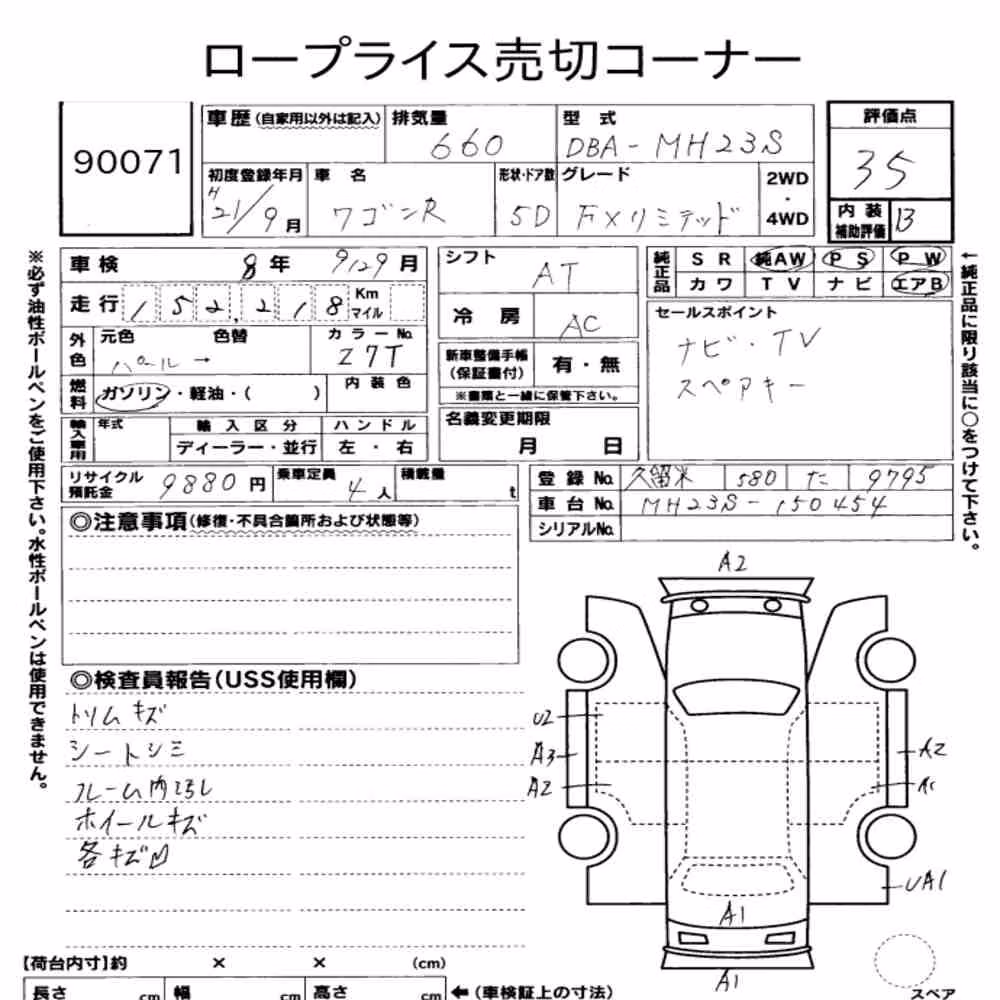 ロープライス売切コーナー
90071
車歴(自家用以外は記入) 排気量 660 型式 DBA-MH23S
初度登録年月 H21/9月 車名 ワゴンR 形状・ドア数 5D グレード FXリミテッド 2WD・4WD
評価点 35
内装補助評価 B
車検 8年 9/29月
走行 152,218 Km マイル
外色 元色 パール → 色替 カラーNo. Z7T
燃料 ガソリン・軽油・( ) 内装色
輸入車用 年式 輸入区分 ディーラー・並行 ハンドル 左・右
リサイクル預託金 9880円 乗車定員 4人 積載量 t
シフト AT
冷房 AC
新車整備手帳(保証書付) 有・無
※書類と一緒に保管下さい。
名義変更期限 月 日
純正品 SR 純AW PS PW
カワ TV ナビ エアB
セールスポイント
ナビ・TV
スペアキー
登録No. 久留米 580 た 9795
車台No. MH23S-150454
シリアルNo.
※必ず油性ボールペンをご使用下さい。水性ボールペンは使用できません。
←純正品に限り該当に○をつけて下さい。
◎注意事項(修復・不具合箇所および状態等)
◎検査員報告(USS使用欄)
トリムキズ
シートシミ
ホイールキズ
A2
U2
A3
A2
A2
UA1
A1
A1
スペア
【荷台内寸】約 × × (cm)
長さ cm 幅 cm 高さ cm ←(車検証上の寸法)